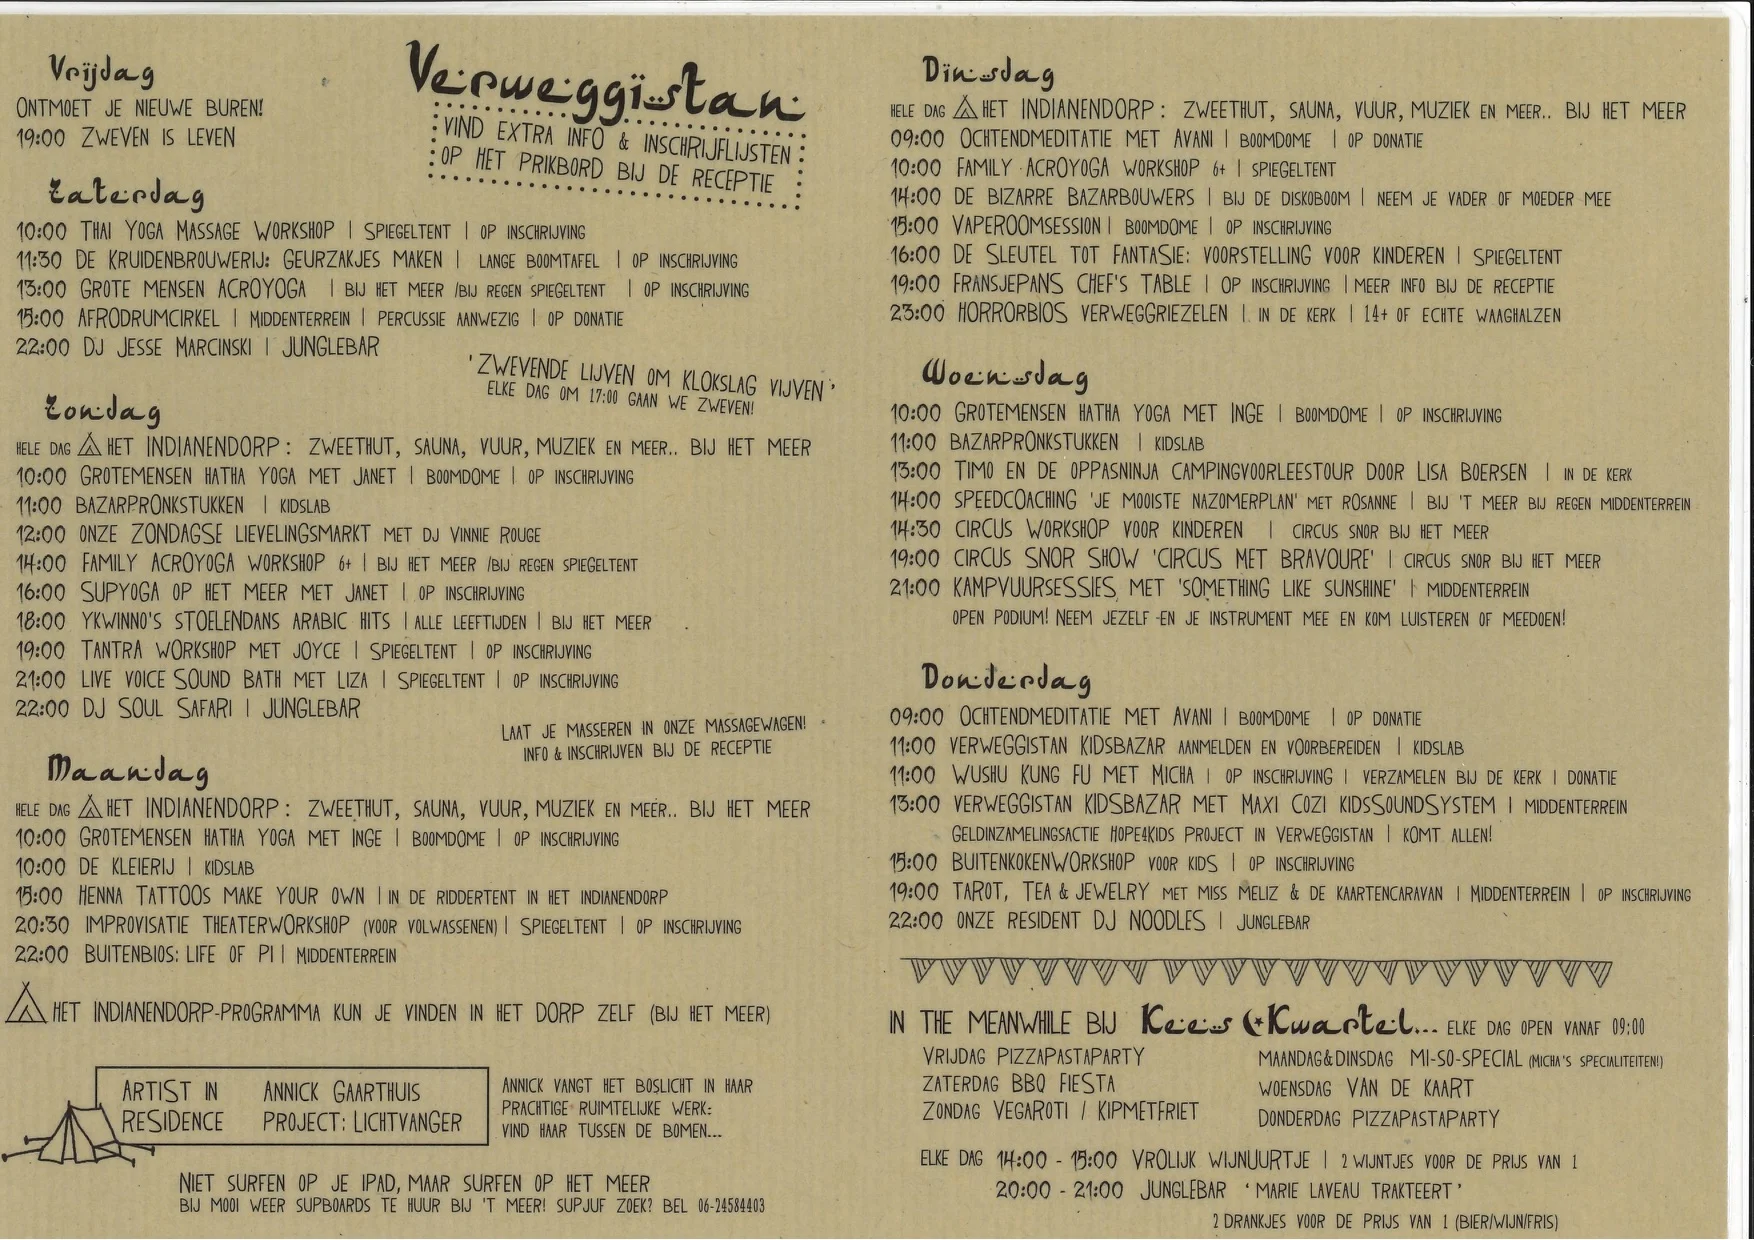 Verweggistan
VIND EXTRA INFO & INSCHRIJFLIJSTEN
OP HET PRIKBORD BIJ DE RECEPTIE
Vrijdag
ONTMOET JE NIEUWE BUREN!
19:00 ZWEVEN IS LEVEN
Zaterdag
10:00 THAI YOGA MASSAGE WORKSHOP | SPIEGELTENT | OP INSCHRIJVING
11:30 DE KRUIDENBROUWERIJ: GEURZAKJES MAKEN | LANGE BOOMTAFEL | OP INSCHRIJVING
13:00 GROTE MENSEN ACROYOGA | BIJ HET MEER /BIJ REGEN SPIEGELTENT | OP INSCHRIJVING
15:00 AFRODRUMCIRKEL | MIDDENTERREIN | PERCUSSIE AANWEZIG | OP DONATIE
22:00 DJ JESSE MARCINSKI | JUNGLEBAR
'ZWEVENDE LIJVEN OM KLOKSLAG VIJVEN'
ELKE DAG OM 17:00 GAAN WE ZWEVEN!
Zondag
HELE DAG HET INDIANENDORP: ZWEETHUT, SAUNA, VUUR, MUZIEK EN MEER.. BIJ HET MEER
10:00 GROTEMENSEN HATHA YOGA MET JANET | BOOMDOME | OP INSCHRIJVING
11:00 BAZARPRONKSTUKKEN | KIDSLAB
12:00 ONZE ZONDAGSE LIEVELINGSMARKT MET DJ VINNIE ROUGE
14:00 FAMILY ACROYOGA WORKSHOP 6+ | BIJ HET MEER /BIJ REGEN SPIEGELTENT
16:00 SUPYOGA OP HET MEER MET JANET | OP INSCHRIJVING
18:00 YKWINNO'S STOELENDANS ARABIC HITS | ALLE LEEFTIJDEN | BIJ HET MEER
19:00 TANTRA WORKSHOP MET JOYCE | SPIEGELTENT | OP INSCHRIJVING
21:00 LIVE VOICE SOUND BATH MET LIZA | SPIEGELTENT | OP INSCHRIJVING
22:00 DJ SOUL SAFARI | JUNGLEBAR
LAAT JE MASSEREN IN ONZE MASSAGEWAGEN!
INFO & INSCHRIJVEN BIJ DE RECEPTIE
Maandag
HELE DAG HET INDIANENDORP: ZWEETHUT, SAUNA, VUUR, MUZIEK EN MEER.. BIJ HET MEER
10:00 GROTEMENSEN HATHA YOGA MET INGE | BOOMDOME | OP INSCHRIJVING
10:00 DE KLEIERIJ | KIDSLAB
15:00 HENNA TATTOOS MAKE YOUR OWN | IN DE RIDDERTENT IN HET INDIANENDORP
20:30 IMPROVISATIE THEATERWORKSHOP (VOOR VOLWASSENEN) | SPIEGELTENT | OP INSCHRIJVING
22:00 BUITENBIOS: LIFE OF PI | MIDDENTERREIN
HET INDIANENDORP-PROGRAMMA KUN JE VINDEN IN HET DORP ZELF (BIJ HET MEER)
ARTIST IN RESIDENCE
ANNICK GAARTHUIS
PROJECT: LICHTVANGER
ANNICK VANGT HET BOSLICHT IN HAAR
PRACHTIGE RUIMTELIJKE WERK:
VIND HAAR TUSSEN DE BOMEN...
NIET SURFEN OP JE IPAD, MAAR SURFEN OP HET MEER
BIJ MOOI WEER SUPBOARDS TE HUUR BIJ 'T MEER! SUPJUF ZOEK? BEL 06-24584403
Dinsdag
HELE DAG HET INDIANENDORP: ZWEETHUT, SAUNA, VUUR, MUZIEK EN MEER.. BIJ HET MEER
09:00 OCHTENDMEDITATIE MET AVANI | BOOMDOME | OP DONATIE
10:00 FAMILY ACROYOGA WORKSHOP 6+ | SPIEGELTENT
14:00 DE BIZARRE BAZARBOUWERS | BIJ DE DISKOBOOM | NEEM JE VADER OF MOEDER MEE
15:00 VAPEROOMSESSION | BOOMDOME | OP INSCHRIJVING
16:00 DE SLEUTEL TOT FANTASIE: VOORSTELLING VOOR KINDEREN | SPIEGELTENT
19:00 FRANSJEPANS CHEF'S TABLE | OP INSCHRIJVING | MEER INFO BIJ DE RECEPTIE
23:00 HORRORBIOS VERWEGGRIEZELEN | IN DE KERK | 14+ OF ECHTE WAAGHALZEN
Woensdag
10:00 GROTEMENSEN HATHA YOGA MET INGE | BOOMDOME | OP INSCHRIJVING
11:00 BAZARPRONKSTUKKEN | KIDSLAB
13:00 TIMO EN DE OPPASNINJA CAMPINGVOORLEESTOUR DOOR LISA BOERSEN | IN DE KERK
14:00 SPEEDCOACHING 'JE MOOISTE NAZOMERPLAN' MET ROSANNE | BIJ 'T MEER BIJ REGEN MIDDENTERREIN
14:30 CIRCUS WORKSHOP VOOR KINDEREN | CIRCUS SNOR BIJ HET MEER
19:00 CIRCUS SNOR SHOW 'CIRCUS MET BRAVOURE' | CIRCUS SNOR BIJ HET MEER
21:00 KAMPVUURSESSIES MET 'SOMETHING LIKE SUNSHINE' | MIDDENTERREIN
OPEN PODIUM! NEEM JEZELF EN JE INSTRUMENT MEE EN KOM LUISTEREN OF MEEDOEN!
Donderdag
09:00 OCHTENDMEDITATIE MET AVANI | BOOMDOME | OP DONATIE
11:00 VERWEGGISTAN KIDSBAZAR AANMELDEN EN VOORBEREIDEN | KIDSLAB
11:00 WUSHU KUNG FU MET MICHA | OP INSCHRIJVING | VERZAMELEN BIJ DE KERK | DONATIE
13:00 VERWEGGISTAN KIDSBAZAR MET MAXI COZI KIDSSOUNDSYSTEM | MIDDENTERREIN
GELDINZAMELINGSACTIE HOPE4KIDS PROJECT IN VERWEGGISTAN | KOMT ALLEN!
15:00 BUITENKOKENWORKSHOP VOOR KIDS | OP INSCHRIJVING
19:00 TAROT, TEA & JEWELRY MET MISS MELIZ & DE KAARTENCARAVAN | MIDDENTERREIN | OP INSCHRIJVING
22:00 ONZE RESIDENT DJ NOODLES | JUNGLEBAR
IN THE MEANWHILE BIJ Kees Kwartel... ELKE DAG OPEN VANAF 09:00
VRIJDAG PIZZAPASTAPARTY
ZATERDAG BBQ FIESTA
ZONDAG VEGAROTI / KIPMETFRIET
MAANDAG&DINSDAG MI-SO-SPECIAL (MICHA'S SPECIALITEITEN!)
WOENSDAG VAN DE KAART
DONDERDAG PIZZAPASTAPARTY
ELKE DAG 14:00 - 15:00 VROLIJK WIJNUURTJE | 2 WIJNTJES VOOR DE PRIJS VAN 1
20:00 - 21:00 JUNGLEBAR 'MARIE LAVEAU TRAKTEERT'
2 DRANKJES VOOR DE PRIJS VAN 1 (BIER/WIJN/FRIS)